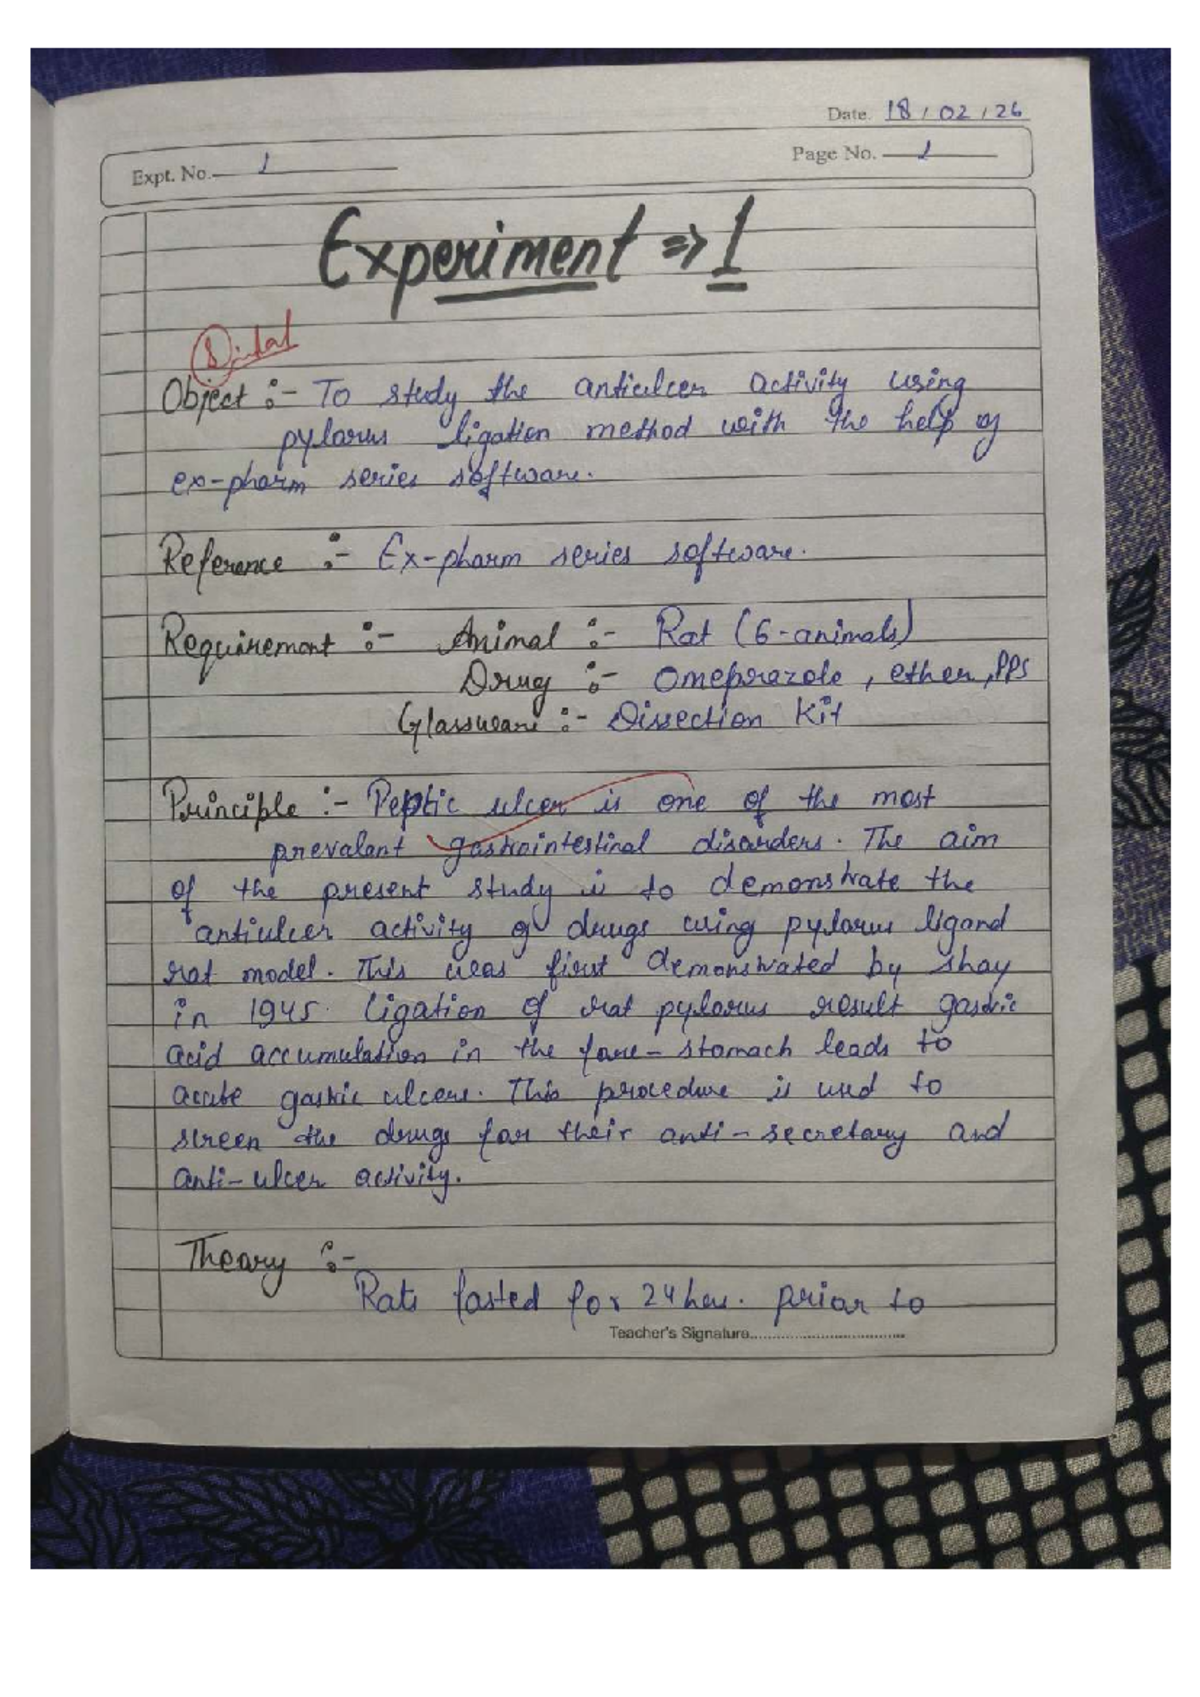 Date. 18 / 02 / 26
Expt. No. 1
Page No. 1
Experiment => 1
Object :- To study the antiulcer activity using
pylorus ligation method with the help of
ex-pharm series software.
Reference :- Ex-pharm series software.
Requirement :- Animal :- Rat (6-animals)
Drug :- Omeprazole, ether, PPS
Glassware :- Dissection Kit
Principle :- Peptic ulcer is one of the most
prevalent gastrointestinal disorders. The aim
of the present study is to demonstrate the
antiulcer activity of drugs using pylorus ligand
rat model. This was first demonstrated by shay
in 1945. Ligation of rat pylorus result gastric
acid accumulation in the fore-stomach leads to
acute gastric ulcers. This procedure is used to
screen the drugs for their anti-secretary and
anti-ulcer activity.
Theory :-
Rats fasted for 24 hrs. prior to
Teacher's Signature